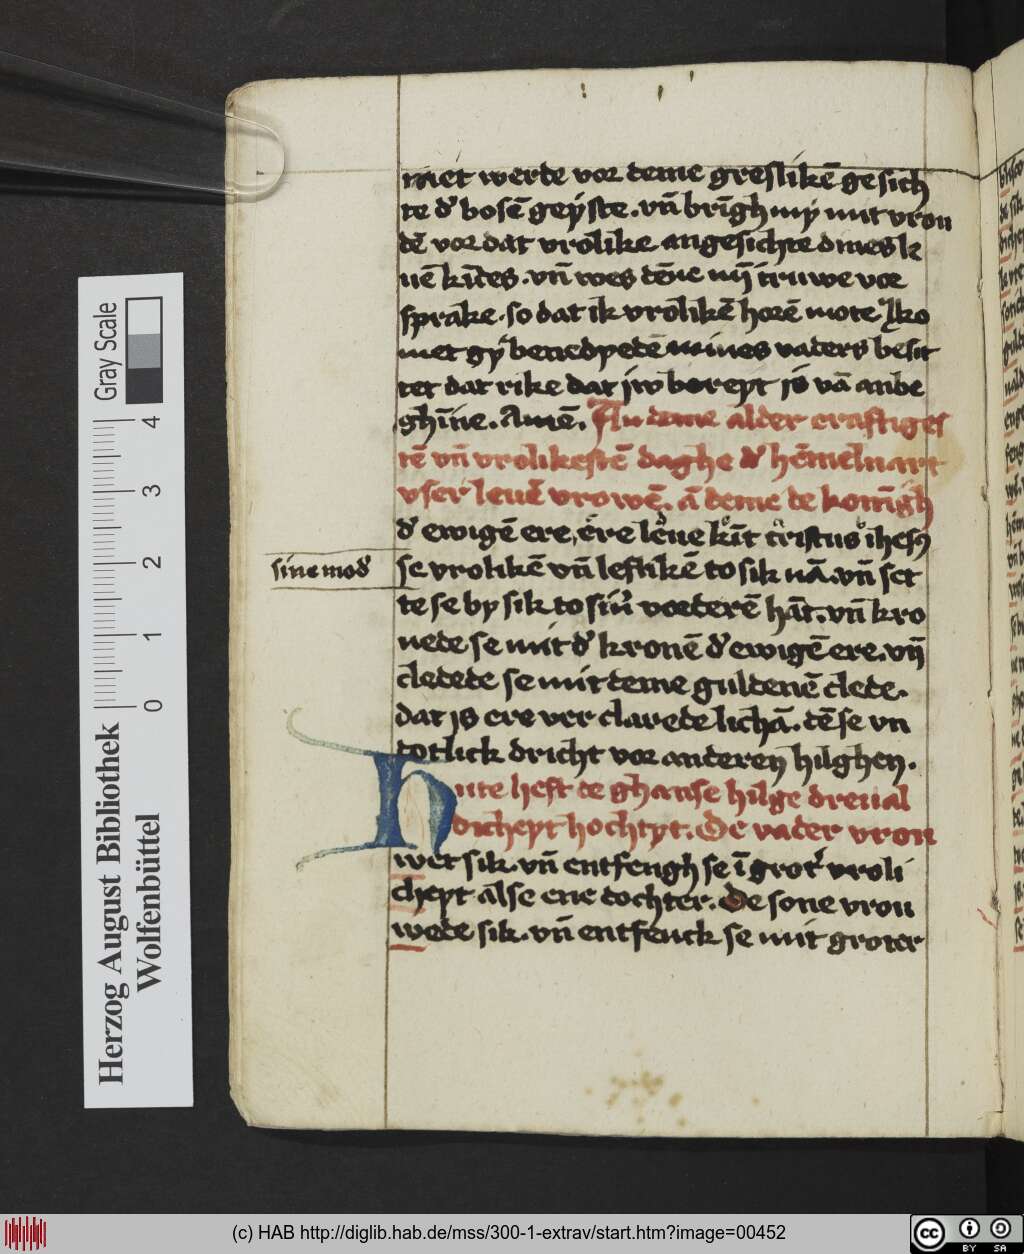 niet werde vor deme greslikē gesich
te d' bosē geyste. vn̄ brīgh my mit vrou
dē vor dat vrolike angesichte dines le
uē kīdes. vn̄ wes dēne mij truwe vor
sprake. so dat ik vrolikē horē mote Ko
met gy benedyedē mines vaders besit
tet dat rike dat jw bereyt js vā anbe
ghīne. Amē. An deme alder craftiges
tē vn̄ vrolikestē daghe d' hēmeluart
vser leuē vrowē. ā deme de konīgh
d' ewigē ere, ere leue kīt cristus ihesꝰ
sine mod'
se vrolikē vn̄ leflikē to sik nā. vn̄ set
te se by sik to sin' vorderē hāt. vn̄ kro
nede se mit d' kronē d' ewigē ere. vn̄
cledede se mit deme guldenē clede.
dat js ere ver clarede lichā. dē se vn
totlick dricht vor anderen hilghen.
Hute heft de ghanse hilge dreual
dicheyt hochtyt. De vader vrou
wet sik. vn̄ entfengh se ī grot' vroli
cheyt alse ene dochter. De sone vrou
wede sik. vn̄ entfenck se mit groter
Gray Scale
0 1 2 3 4
Herzog August Bibliothek
Wolfenbüttel
(c) HAB http://diglib.hab.de/mss/300-1-extrav/start.htm?image=00452
cc BY SA